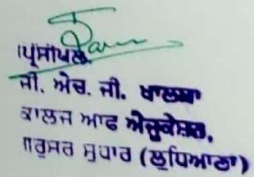 ਪ੍ਰਿੰਸੀਪਲ
ਜੀ. ਐਚ. ਜੀ. ਖਾਲਸਾ
ਕਾਲਜ ਆਫ ਐਜੂਕੇਸ਼ਨ,
ਗੁਰੂਸਰ ਸੁਧਾਰ (ਲੁਧਿਆਣਾ)